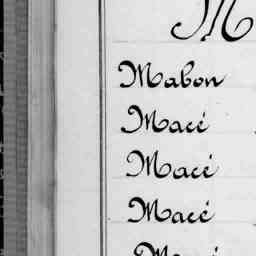 M
Mabon
Macé
Macé
Macé